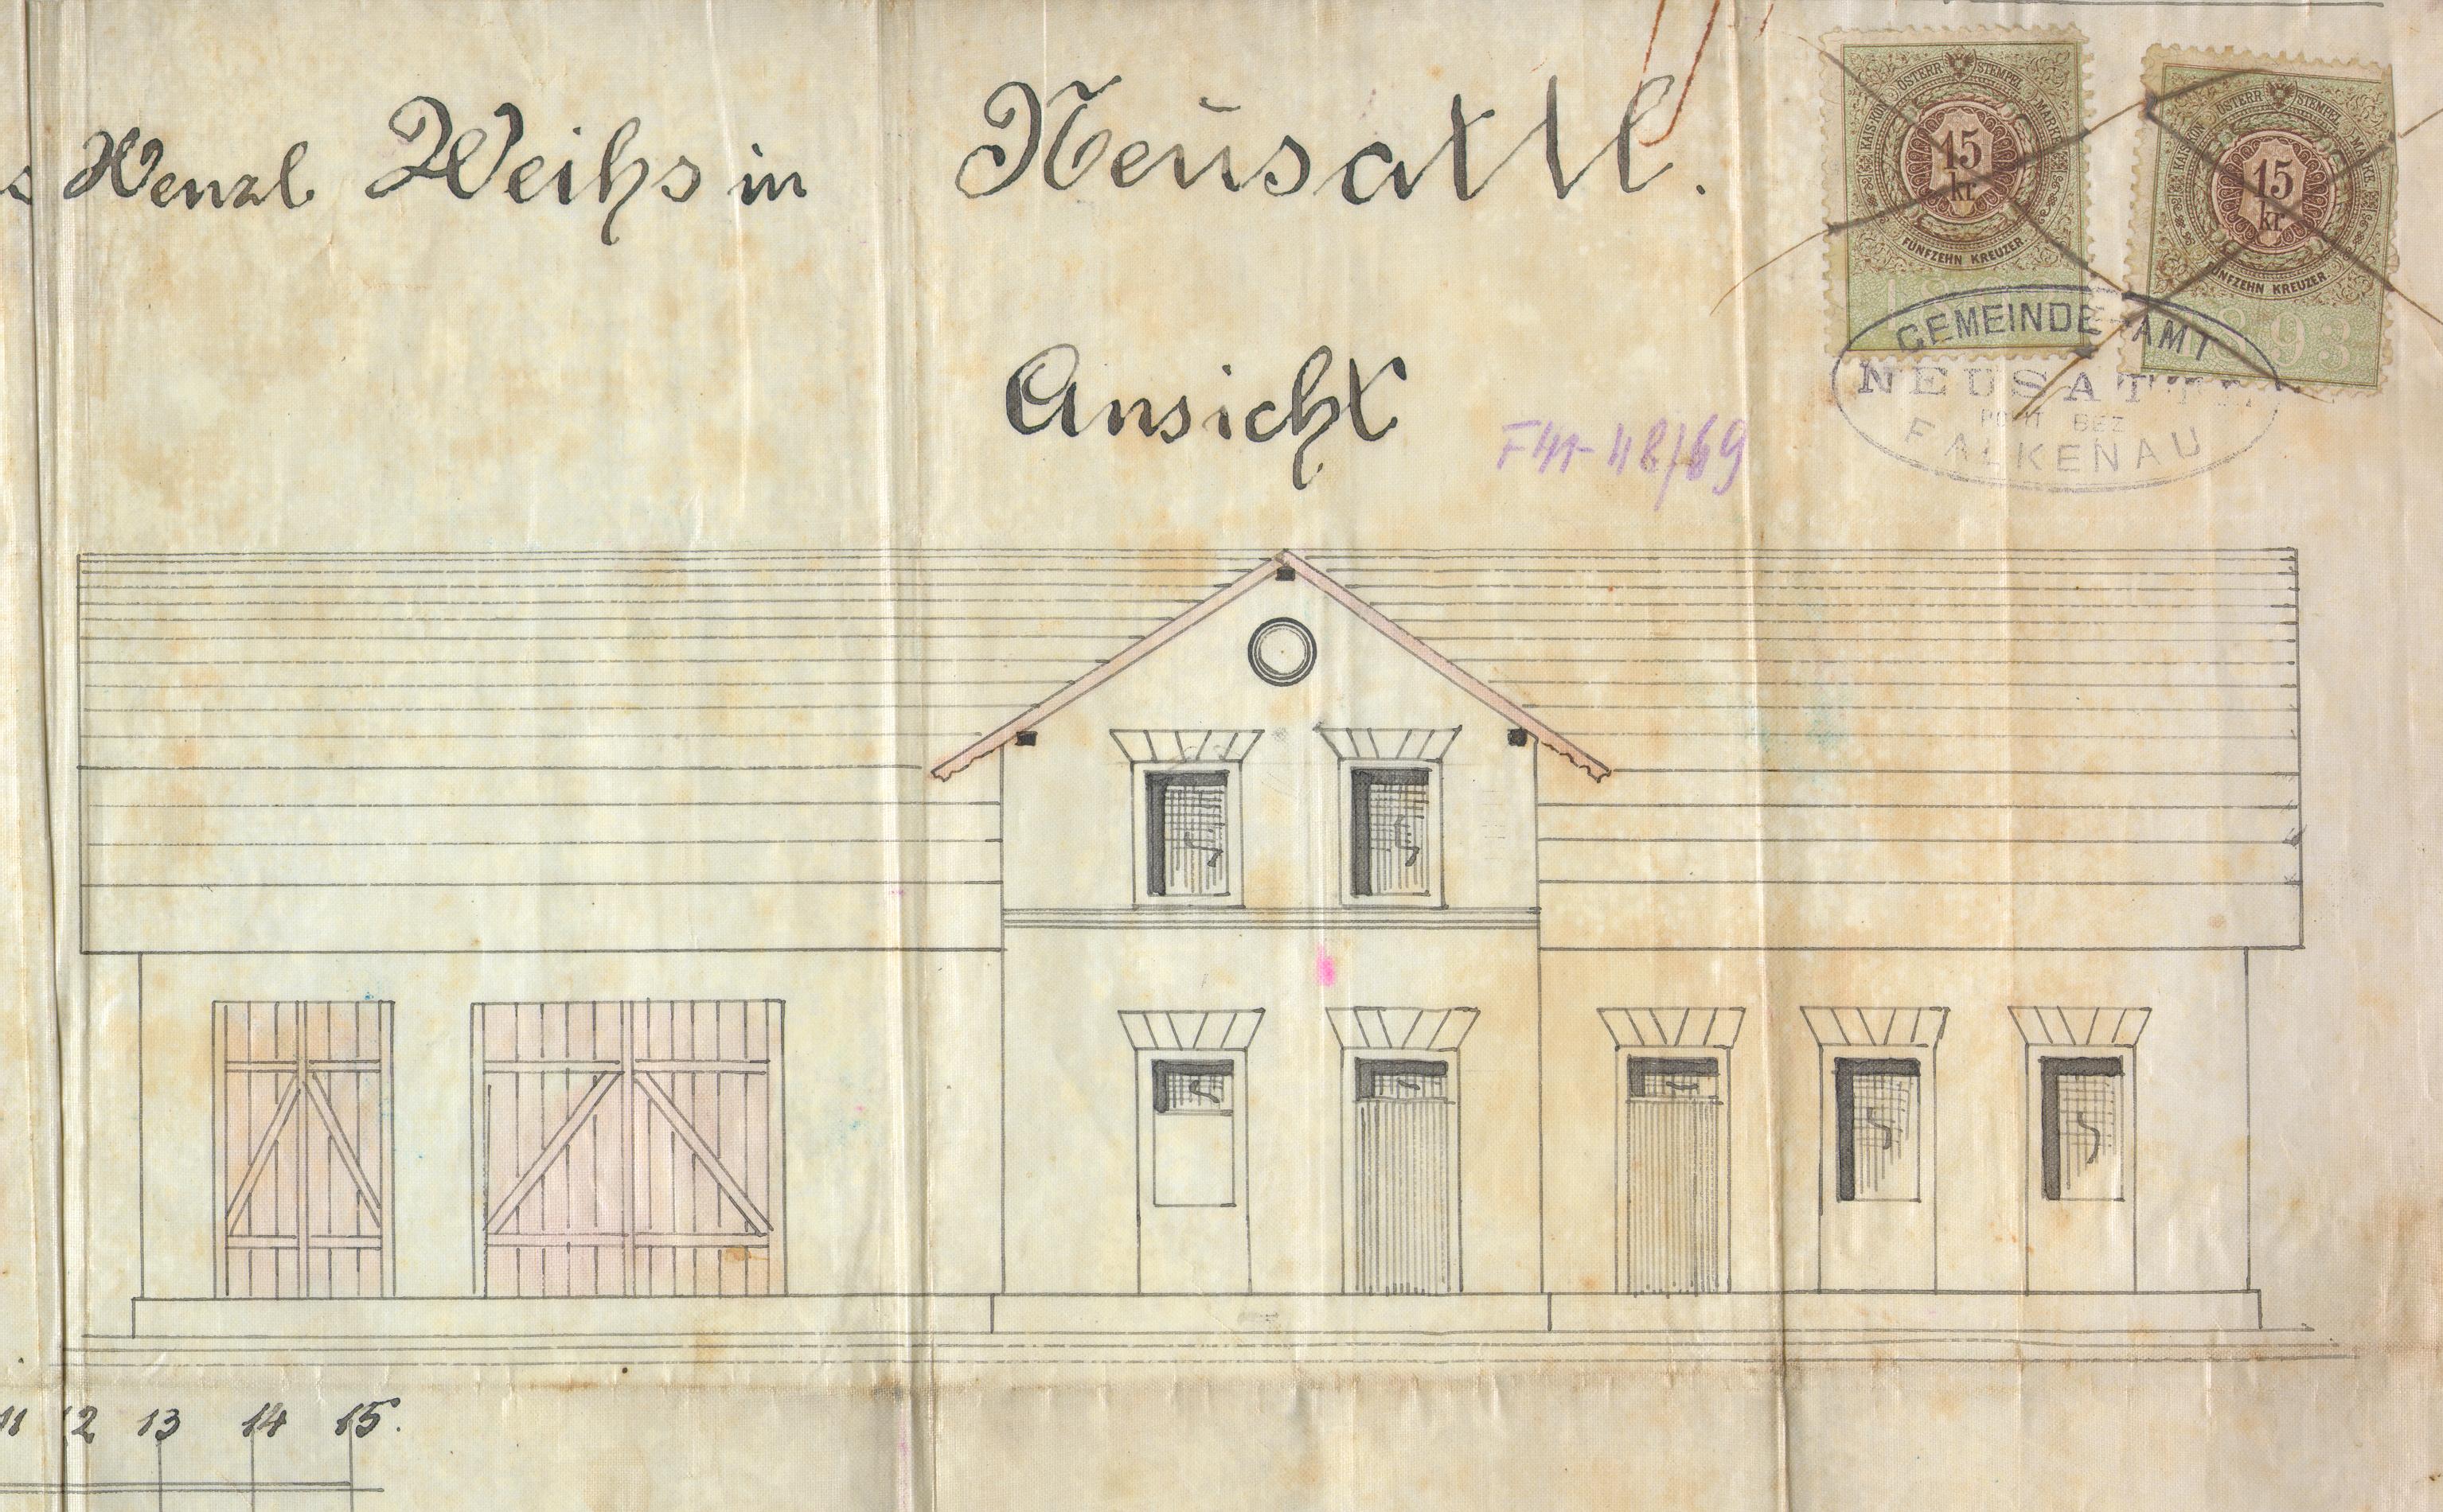 Wenzl Weihs in Neusattl.
KAIS. KÖN. ÖSTERR. STEMPEL MARKE
15
kr.
FÜNFZEHN KREUZER
KAIS. KÖN. ÖSTERR. STEMPEL MARKE
15
kr.
FÜNFZEHN KREUZER
1893
GEMEINDE-AMT
NEUSATTL
BEZ
FALKENAU
Ansicht
48/69
11 12 13 14 15.